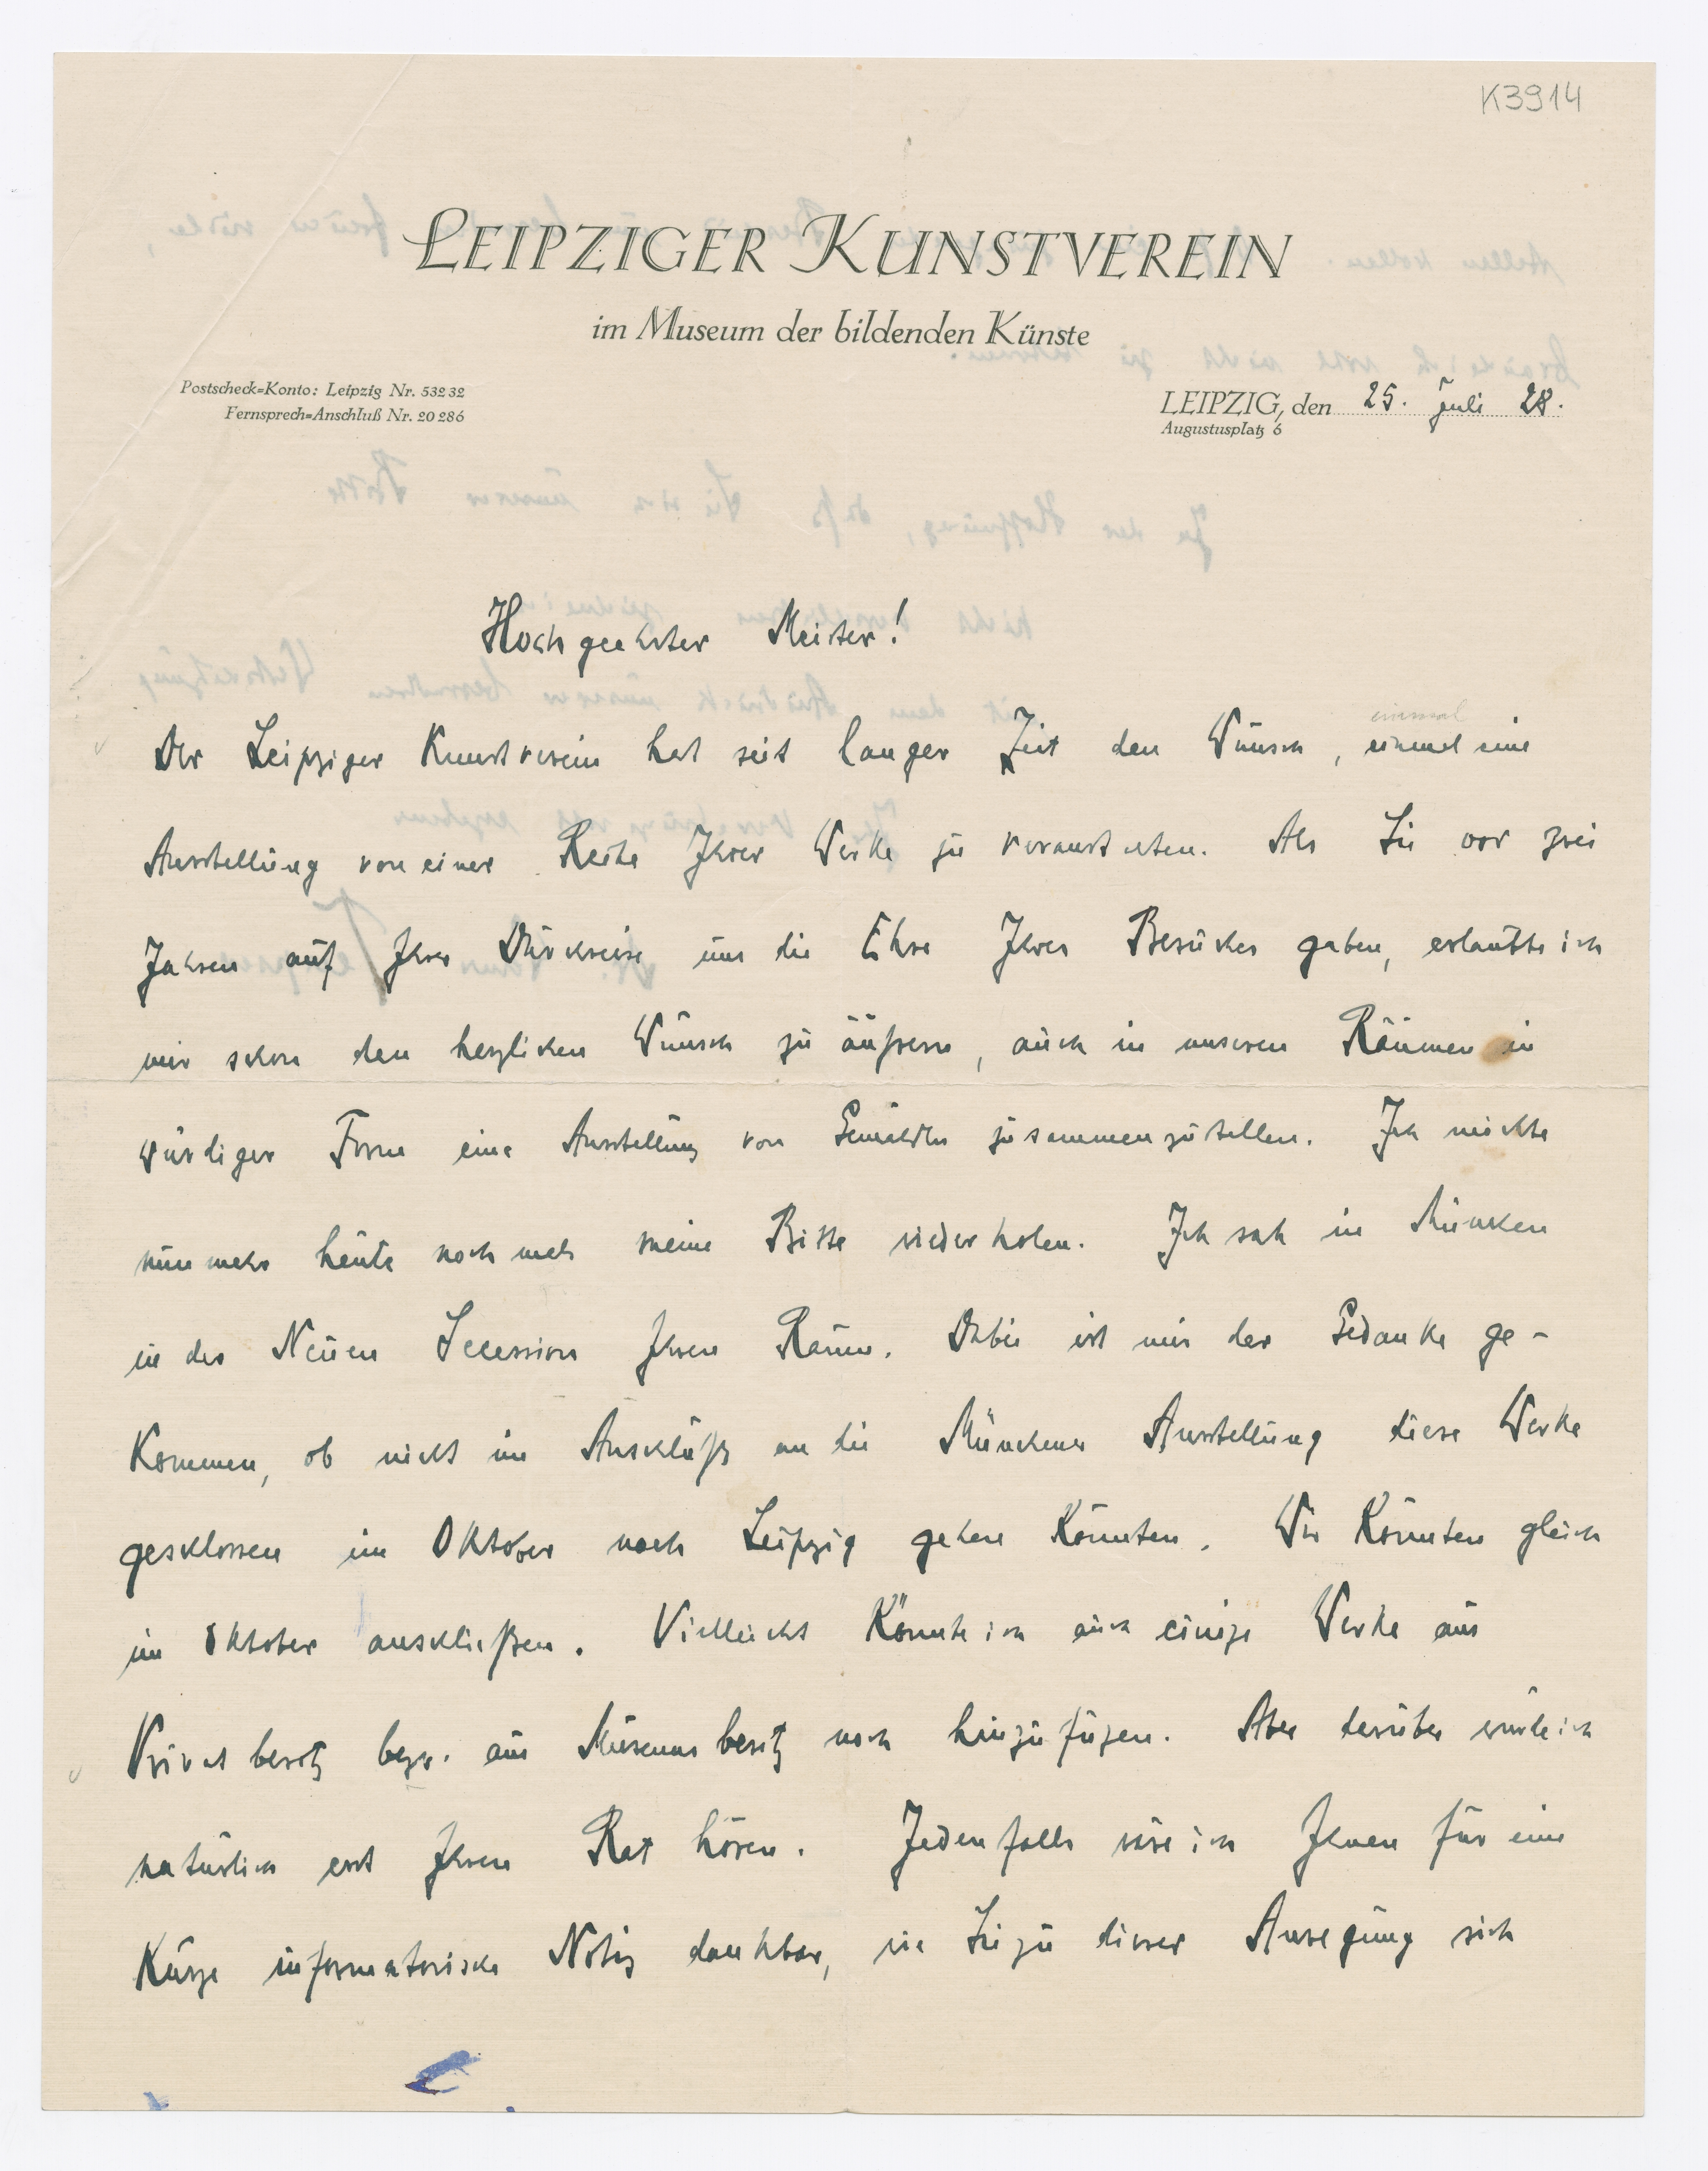 K3914
LEIPZIGER KUNSTVEREIN
im Museum der bildenden Künste
Postscheck=Konto: Leipzig Nr. 53232
Fernsprech=Anschluß Nr. 20286
LEIPZIG, den 25. Juli 28.
Augustusplatz 6
Hochgeehrter Meister!
einmal
Der Leipziger Kunstverein hat seit langer Zeit den Wunsch, einmal eine
Ausstellung von einer Reihe Ihrer Werke zu veranstalten. Als Sie vor zwei
Jahren auf Ihrer Durchreise uns die Ehre Ihres Besuches gaben, erlaubte ich
mir schon den herzlichen Wunsch zu äußern, auch in unseren Räumen in
würdiger Form eine Ausstellung von Gemälden zusammenzustellen. Ich möchte
nunmehr heute nochmals meine Bitte wiederholen. Ich sah in München
in der Neuen Secession Ihren Raum. Dabei ist mir der Gedanke ge-
kommen, ob nicht im Anschluß an die Münchener Ausstellung diese Werke
geschlossen im Oktober nach Leipzig gehen könnten. Wir könnten gleich
im Oktober anschließen. Vielleicht könnte ich auch einige Werke aus
Privatbesitz bezw. aus Museumsbesitz noch hinzufügen. Aber darüber würde ich
natürlich erst Ihren Rat hören. Jedenfalls wäre ich Ihnen für eine
kurze informatorische Notiz dankbar, wie Sie zu dieser Anregung sich